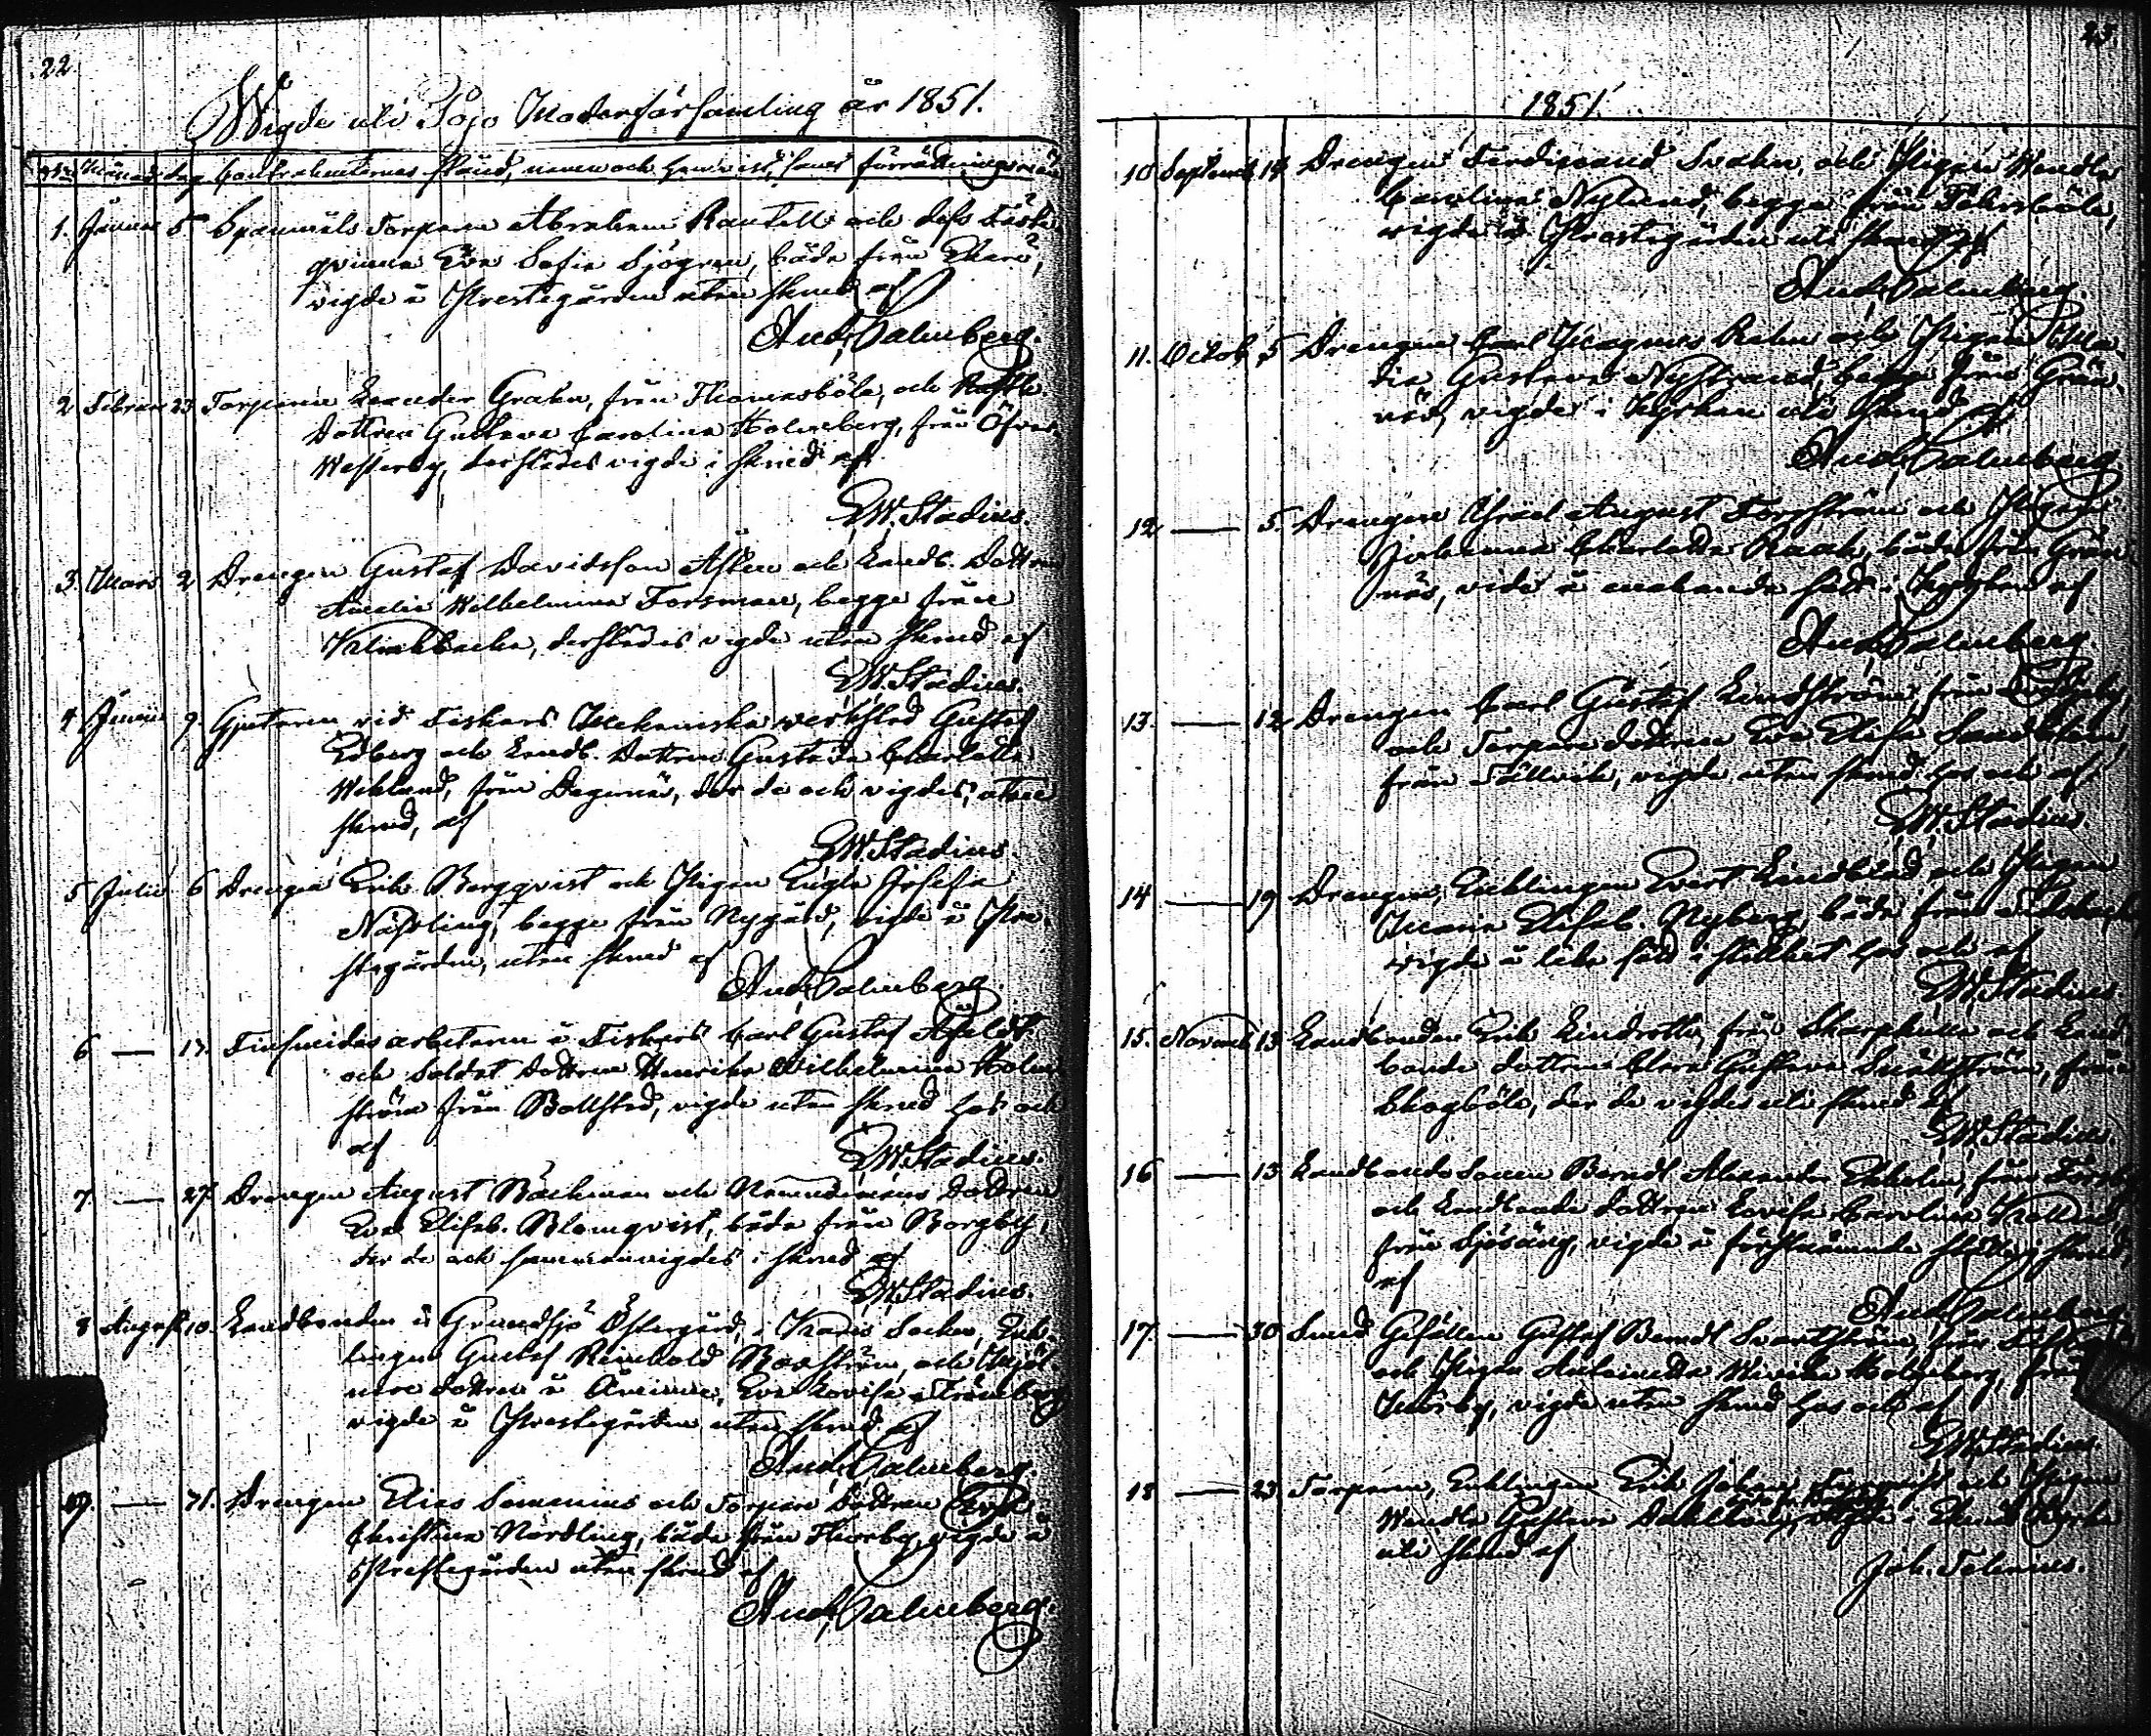 22
Wigde uti Pojo Moderförsamling år 1851.
Månad dag Contrahenternas stånd, namn och hemvist, samt förrättningsman
1. Januar 5 Spanmåls Torparen Abraham Rantell och dess Fäste-
qvinna Eva Sofia Sjögren, båda från Ekerö,
vigde å Prestegården utan skrud af
And. Palmberg.
2 Februar 23 Torparen Leander Grahn, från Thomasböle, och
Dottren Gustava Carolina Holmberg, från Öfver-
Westerby, derstädes vigde i skrud af
W. Stadius.
3. Mars 2 Drengen Gustaf Davidsson Asten och Landb. Dottren
Amalia Wilhelmina Forsman, begge från
Klinkbacka, derstädes vigde utan skrud af
W. Stadius.
4 Junii 9. Gjutaren vid Fiskars Mekaniska verkstad Gustaf
Edberg och Landb. Dottren Gustava Charlotta
Weklund, från Degernäs, der de och vigdes, utan
skrud, af
W. Stadius.
5 Julii 6 Drengen Erik Bergqvist och Pigan Engla Josefa
Näsling, begge från Nygård, vigde å Pre-
stegården, utan skrud af
And. Palmberg.
6 — 13. Finsmides arbetaren å Fiskars Carl Gustaf
och Soldat Dottren Henrika Wilhelmina Holm-
ström från Bollstad, vigde utan skrud hos och
af
W. Stadius.
7. — 27. Drengen August Bäckman och Nämndemans Dottren
Eva Elisab. Blomqvist, båda från Borgby,
der de och sammanvigdes i skrud af
W. Stadius.
8 August 10. Landbonden å Grundsjö Östergård, i Karis Socken, Enk-
lingen Gustaf Reinhold Boxström, och Mjöl-
nare Dottren å Åminne, Eva Lovisa Strömberg
vigde å Prestegården utan skrud af
And. Palmberg.
9. — 31. Drengen Elias Semenius och Torpare Dottren
Christina Nordling, båda från Thorsby, vigde å
Prestegården utan skrud af
And. Palmberg.
23
1851.
10 Septemb. 14 Drengen Ferdinand Svahn, och Pigan Wendla
Carolina Nylund, begge från Fåkersböle,
vigde å Prestegården uti skrud af
And. Palmberg.
11. Octob. 5 Drengen Carl Magnus Rehn och Pigan Ma-
ria Gustava Nystrand, begge från Grän-
näs, vigde i Kyrkan uti skrud af
And. Palmberg.
12 — 5. Drengen Israel August Forsström och Pigan
Johanna Charlotta Raak, båda från Grän-
näs, vide å enahanda sätt i Kyrkan af
And. Palmberg
13. — 12 Drengen Carl Gustaf Lindström, från
och Torpare dottren Eva Elisa Sandblom,
från Fållvik, vigde utan skrud hos och af
W. Stadius.
14 — 19 Drengen, Enklingen Evert Lindblad och Pigan
Maria Elisab. Nyberg, båda från
vigde å lika sätt i stillhet hos och af
W. Stadius.
15. Novemb. 13 Landbonden Erik Lindroth, från Skarpkulla och Land-
bonde dottren Clara Gustava Snällström, från
Skogböle, der de vigdes uti skrud af
W. Stadius.
16 — 13 Landbonde Sonen Berndt Alexander Ekholm, från
och Landbonde dottren Lovisa Carolina
från Sjösäng, vigde å förstnämnde ställe i skrud,
af
And. Palmberg.
17. — 30 Smed Gesällen Gustaf Berndt Svartström, från
och Pigan Antoinetta Ulrika Holmberg, från
Mörby, vigde utan skrud hos och af
W. Stadius.
18 — 23 Torparen, Enklingen Erik Johan och Pigan
Wendla Gustava i Ekenäs Kyrka
uti skrud af
Joh. Telenius.